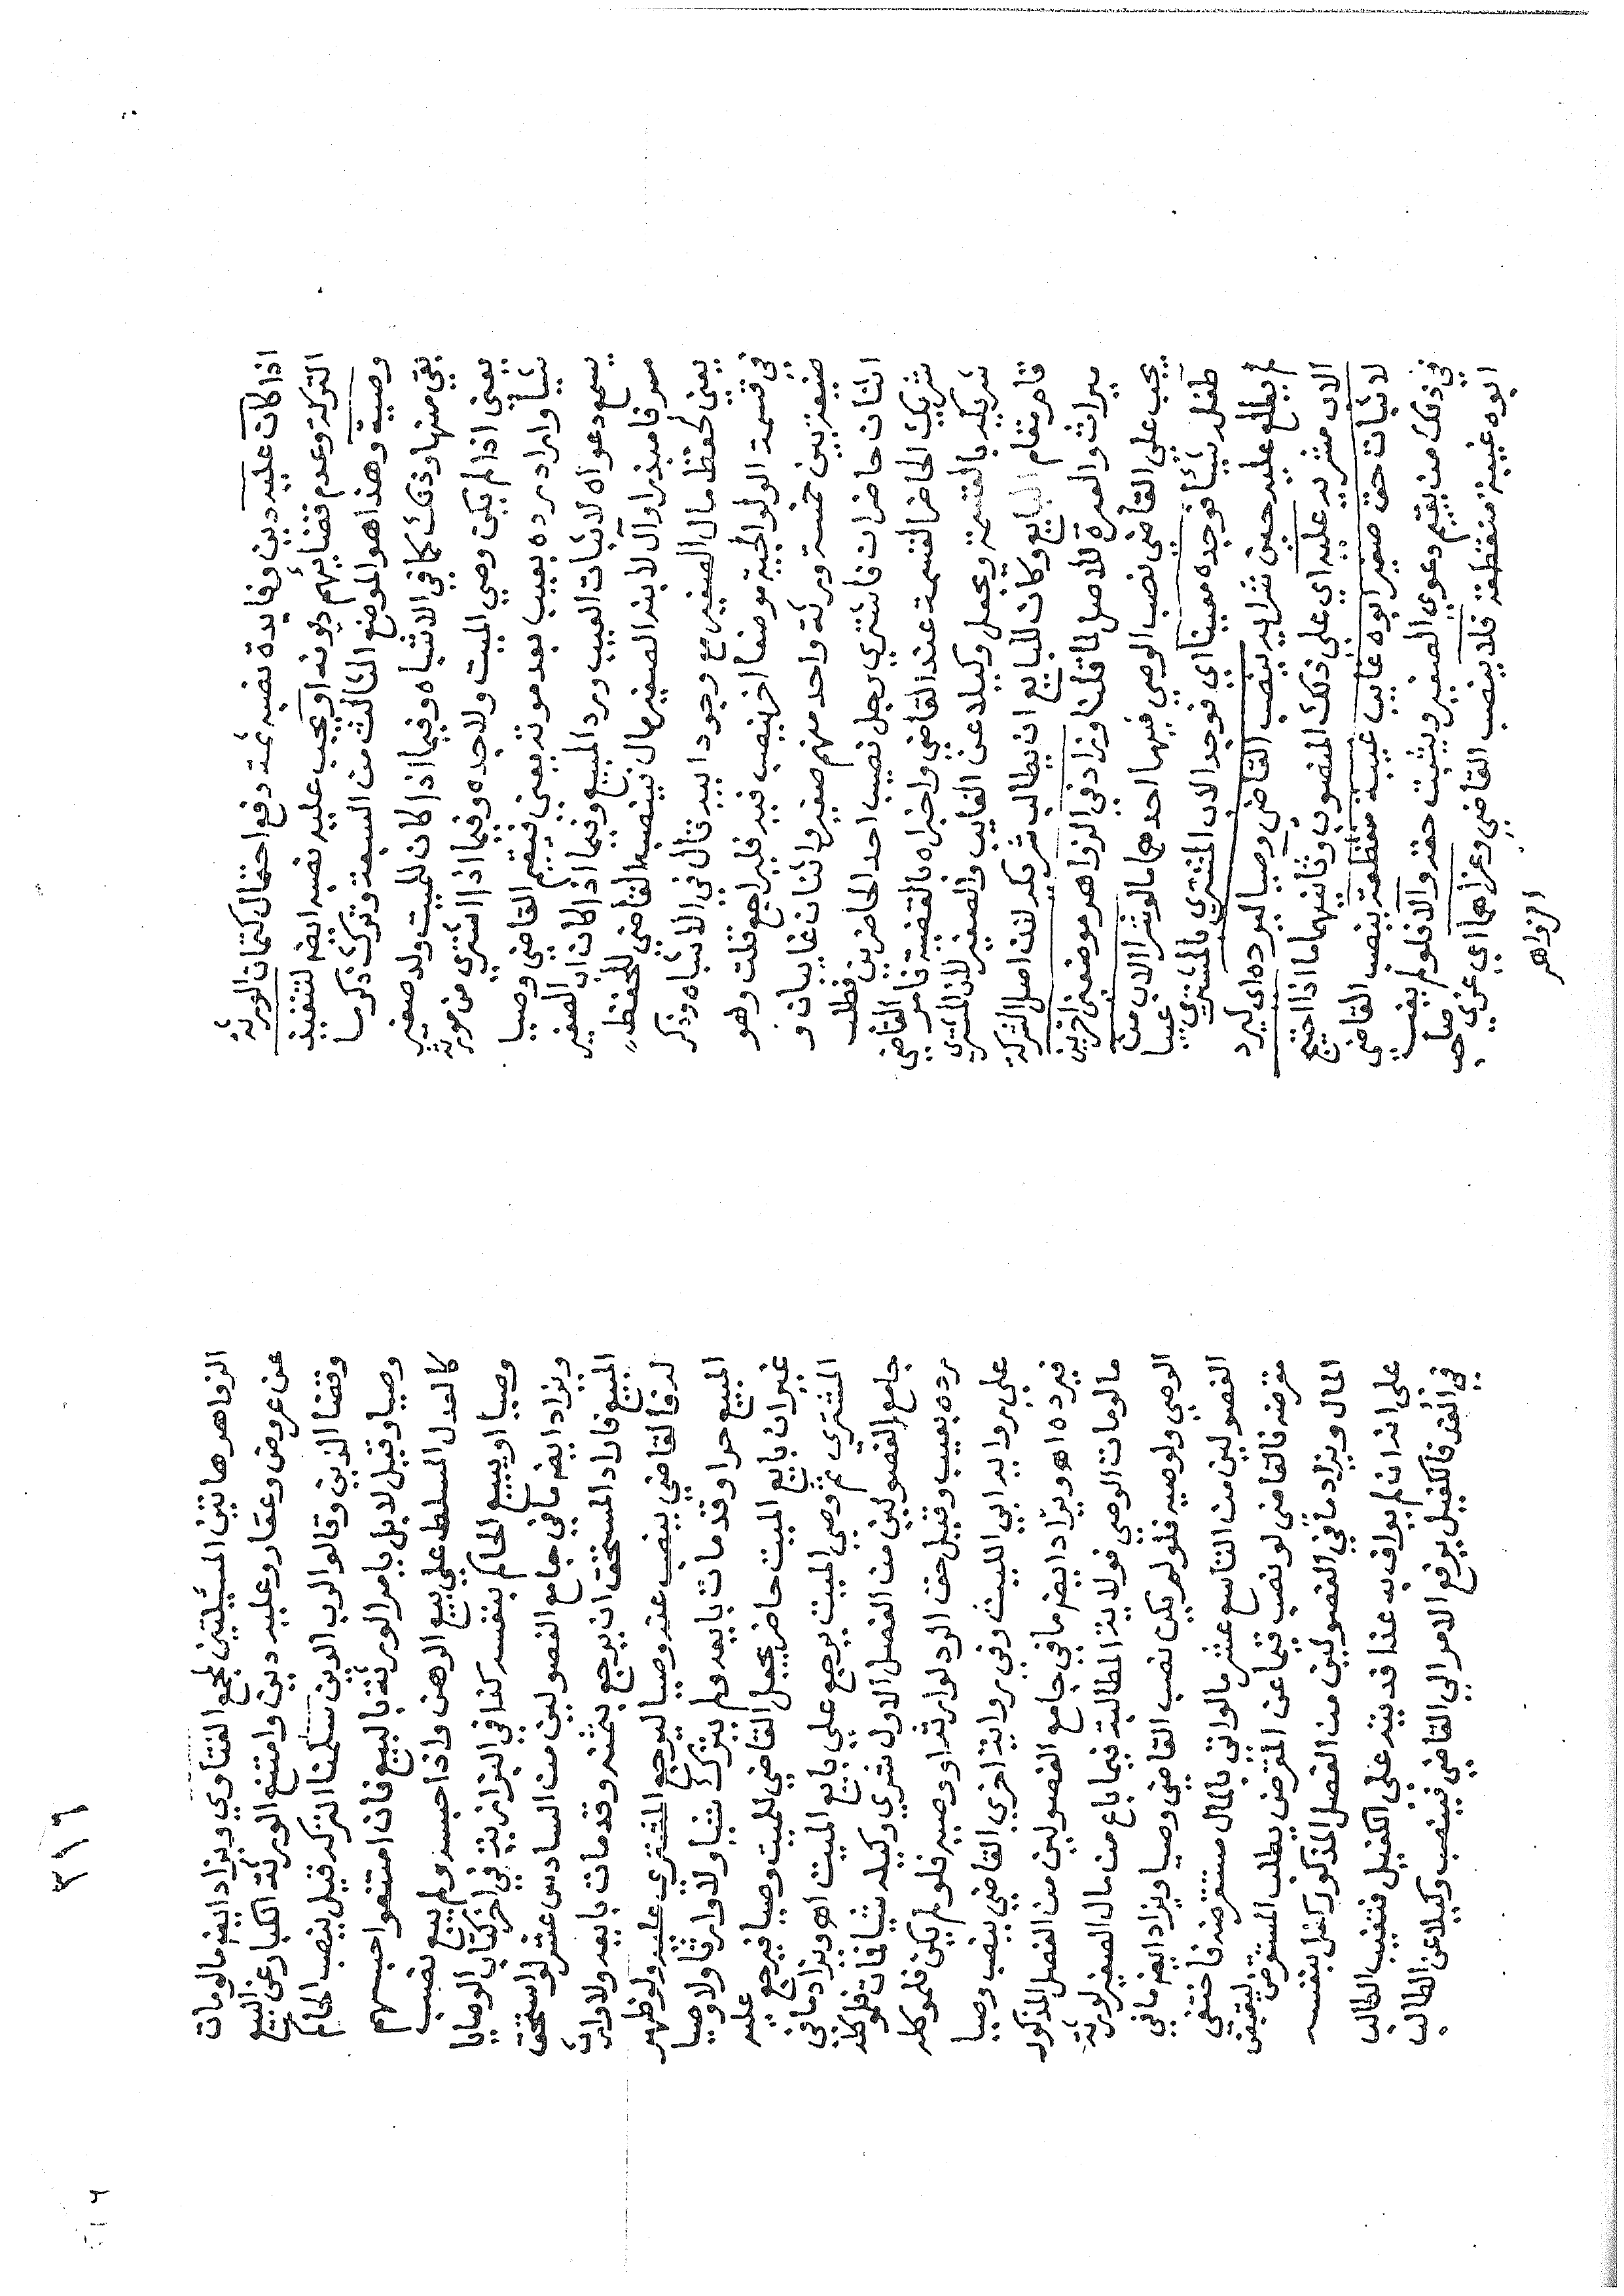 اذا كان عليه دين وفايدة نصبه ثمة دفع احتمال كتمان الورثة
التركة وعدم قضايهم ديونه او يجب عليه نصبه ايضا لتنفيذ
وصية وهذا هو الموضع الثالث من السبعة وتوك ذكر ما
بقي منها وذلك كما في الاشباه وفيما اذا كان للميت ولد صغير
يعني اذا لم يكن وصي الميت ولا جده وفيما اذا اشتري من مورثه
شيأ واراد رده بعيب بعد موته يعني فيقيم القاضي وصيا
يسمع دعواه لاثبات العيب ورد المبيع وفيما اذا كان اب الصغير
مسرفا مبذرا وآل الابنه الصغير مال فينصبه القاضي للحفظ
يعني لحفظ مال الصغير مع وجود ابيه قال في الاشباه وذكر
في قسمة الولوالجية موضعا اخر ينصب فيه فليراجع قلت وهو
ضيعة بين خمسة ورثة واحد منهم صغير واثنان غايبان و
اثنان حاضران فاشتري رجل نصيب احد الحاضرين فطلب
شريك الحاضر القسمة عند القاضي واخبراه بالقضية فامر القاضي
شريكه بالقسمة ويجعل وكيلا عن الغايب والصغير لان المشتري
قام مقام البايع وكان للبايع ان يطالب شريكه لان اصل الشركة
ميراث والعبرة للاصل لما قلنا وزاد في الزواهر موضعين اخرين
يجب علي القاضي نصب الوصي فيهما احدهما لو شرا الاب من
طفله شيئا فوجده معيبا اي فوجد الاب المشتري بالمشتري عيبا
لم يطلع عليه حين شرايه ينصب القاضي وصيا ليرده اي ليرد
الاب مشتريه عليه اي علي ذلك المنصوب وثانيهما ما اذا احتيج
لاثبات حق صغير ابوه غايب غيبة منقطعة ينصب القاضي
في ذلك من يقيم دعوي الصغير ويثبت حقه والا فلو لم يغب
ابوه غيبة منقطعة فلا ينصب القاضي وعزاهما اي عزي صاحب
الزواهر
الزواهر هاتين المسئلتين لمجمع الفتاوي ويزاد ايضا ما لو مات
عن عروض وعقار وعليه دين وامتنع الورثة الكبار عن البيع
وقضا الدين وقالوا لرب الدين سلمنا التركة قيل ينصب الحاكم
وصيا وقيل لا بل يامر الورثة بالبيع فان امتنعوا حبسهم
كالعدل المسلط علي بيع الرهن واذا حبسه ولم يبع نصب
وصيا او يبيع الحاكم بنفسه كذا في البزازية في اخر كتاب الوصايا
ويزاد ايضا ما في جامع الفصولين من السادس عشر لو استحق
المبيع فاراد المستحق ان يرجع بثمنه وقد مات بايعه ولا وارث
له فالقاضي ينصب عنه وصيا ليرجع المشتري عليه ولو ظهر
المبيع حرا وقد مات بايعه ولم يترك شيأ ولا وارثا ولا وصيا
غير ان بايع الميت حاضر يجعل القاضي للميت وصيا فيرجع عليه
المشتري ثم وصي الميت يرجع علي بايع الميت اهـ ويزاد ما في
جامع الفصولين من الفصل الاول شري وكيله شيأ فمات فلموكله
رده بعيب وقيل حق الرد لوارثه او وصيه فلو لم يكن فلموكله
علي رواية ابي الليث وفي رواية اخري القاضي ينصب وصيا
فيرده اهـ ويزاد ايضا ما في جامع الفصولين من الفصل المذكور
ما لو مات الوصي فولاية المطالبة فيما باع من مال الصغير لورثة
الوصي ولوصيه فلو لم يكن نصب القاضي وصيا ويزاد ايضا ما في
الفصولين من التاسع عشر ما لو اتي بالمال مستقرضه فاختفي
مقرضه فالقاضي لو نصب قيما عن المقرض بطلب المستقرض ليقبض
المال ويزاد ما في الفصولين من الفصل المذكور كفل بنفسه
علي انه ان لم يواف به غدا فدينه علي الكفيل فتغيب الطالب
في الغد فالكفيل يرفع الامر الي القاضي فينصب وكيلا عن الطالب
٣١٦